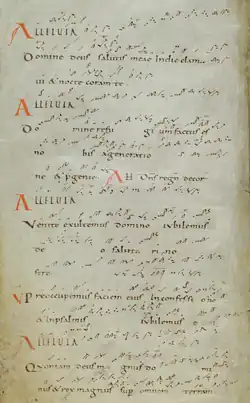 ALLELUIA
Domine deus salutis meae Indie clam
ui & nocte coram te
ALLELUIA
Do mine refu gium factus es
no bis ageneratio
ne & pgenie AH Dns regn decor
ALLELUIA
Venite exultemus domino iubilemus
de o saluta ri no
stro
Preoccupemus faciem eius Inconfessi
& Inpsalmis iubilemus
ALLELUIA
Quoniam deus magnus do mi
nus & rex magnus sup omnem terram